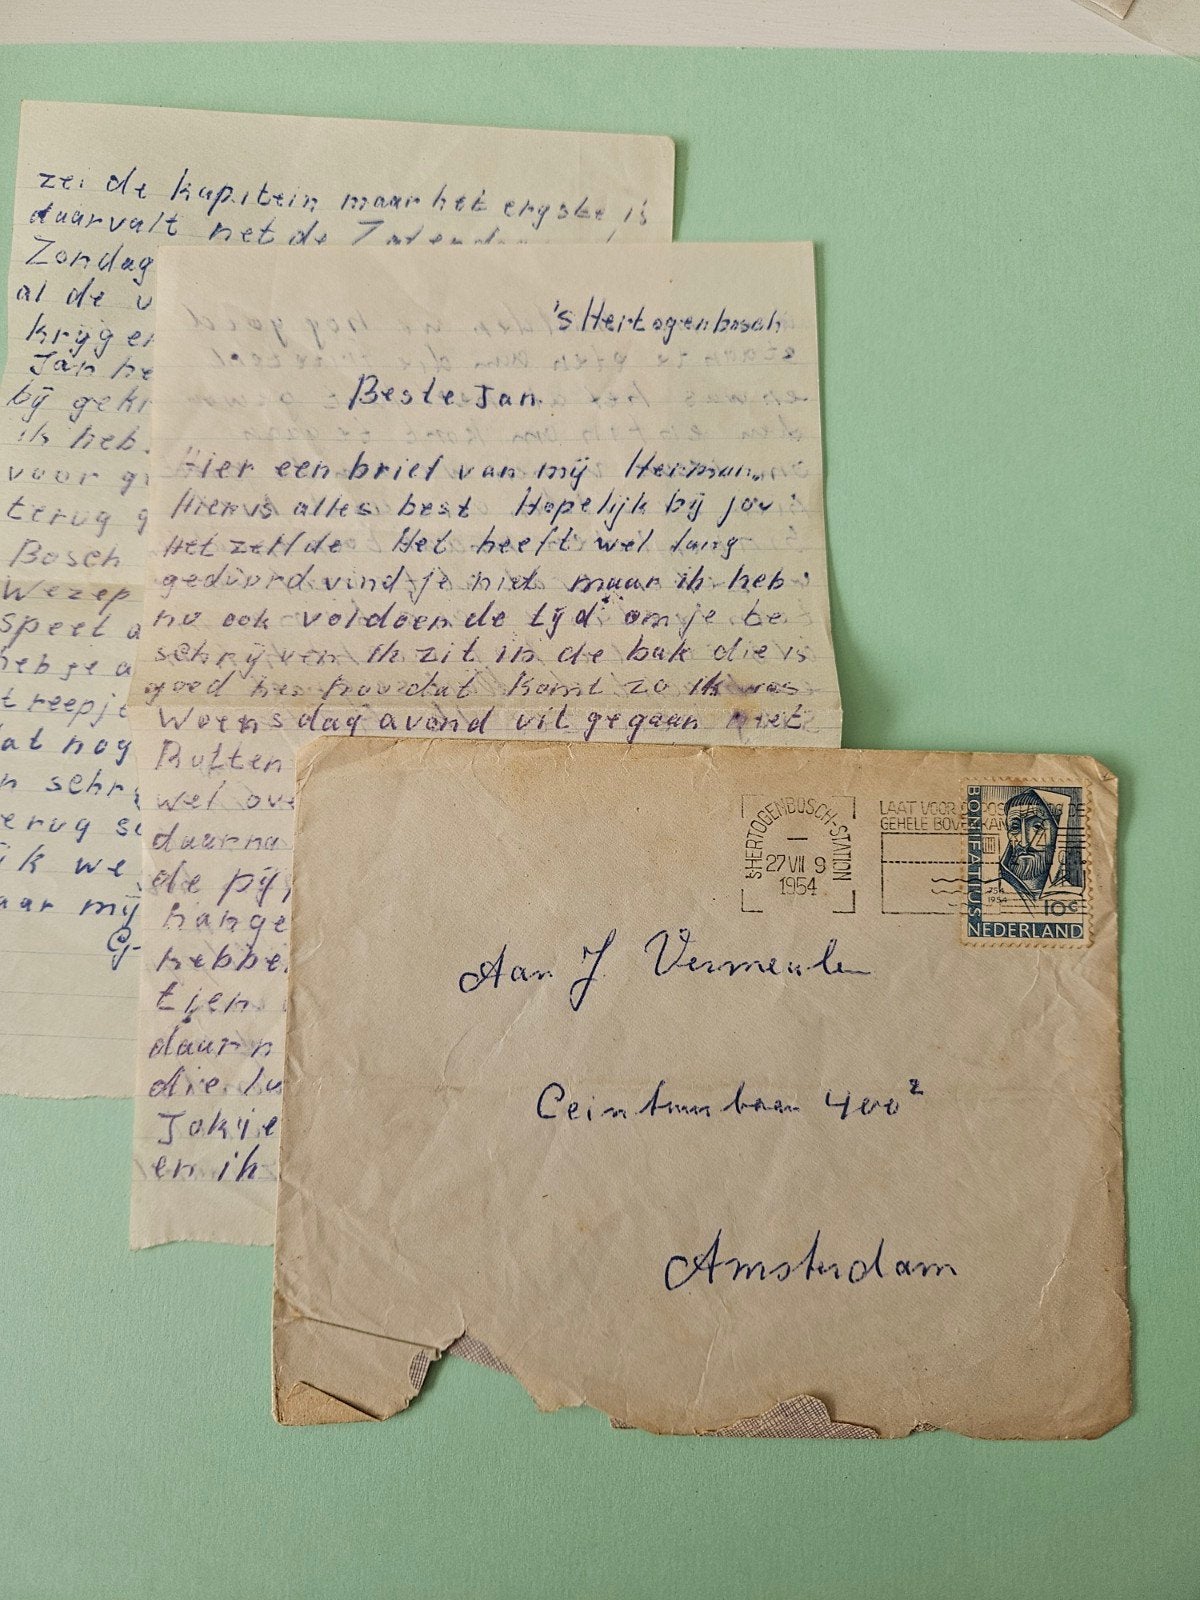 zei de kapitein maar het ergste is
daarvalt net de
Zondag
al de v
krijgen
Jan he
bij gekr
ik heb.
voor g
terug g
Bosch
Wezep
speet a
heb je a
treepje
at nog
n schr
erug sc
ik we
aar mij
G-
's Hertogenbosch
Beste Jan
Hier een brief van mij Herman.
Hier is alles best Hopelijk bij jou
Het zelfde Het heeft wel lang
geduurd vind je niet maar ik heb
nu ook voldoende tijd om je be
schrijven ik zit in de bak die is
goed he hoe dat komt zo ik was
Woensdag avond uit gegaan met
Rutten
wel ove
daarna
de pij
hange
hebbe
tien
daarn
die lu
Jakije
en ik
's HERTOGENBOSCH-STATION
27 VII 9
1954
LAAT VOOR
GEHELE BOVENKANT
BONIFATIUS
754
1954
10c
NEDERLAND
Aan J. Vermeulen
Ceintuurbaan 400²
Amsterdam